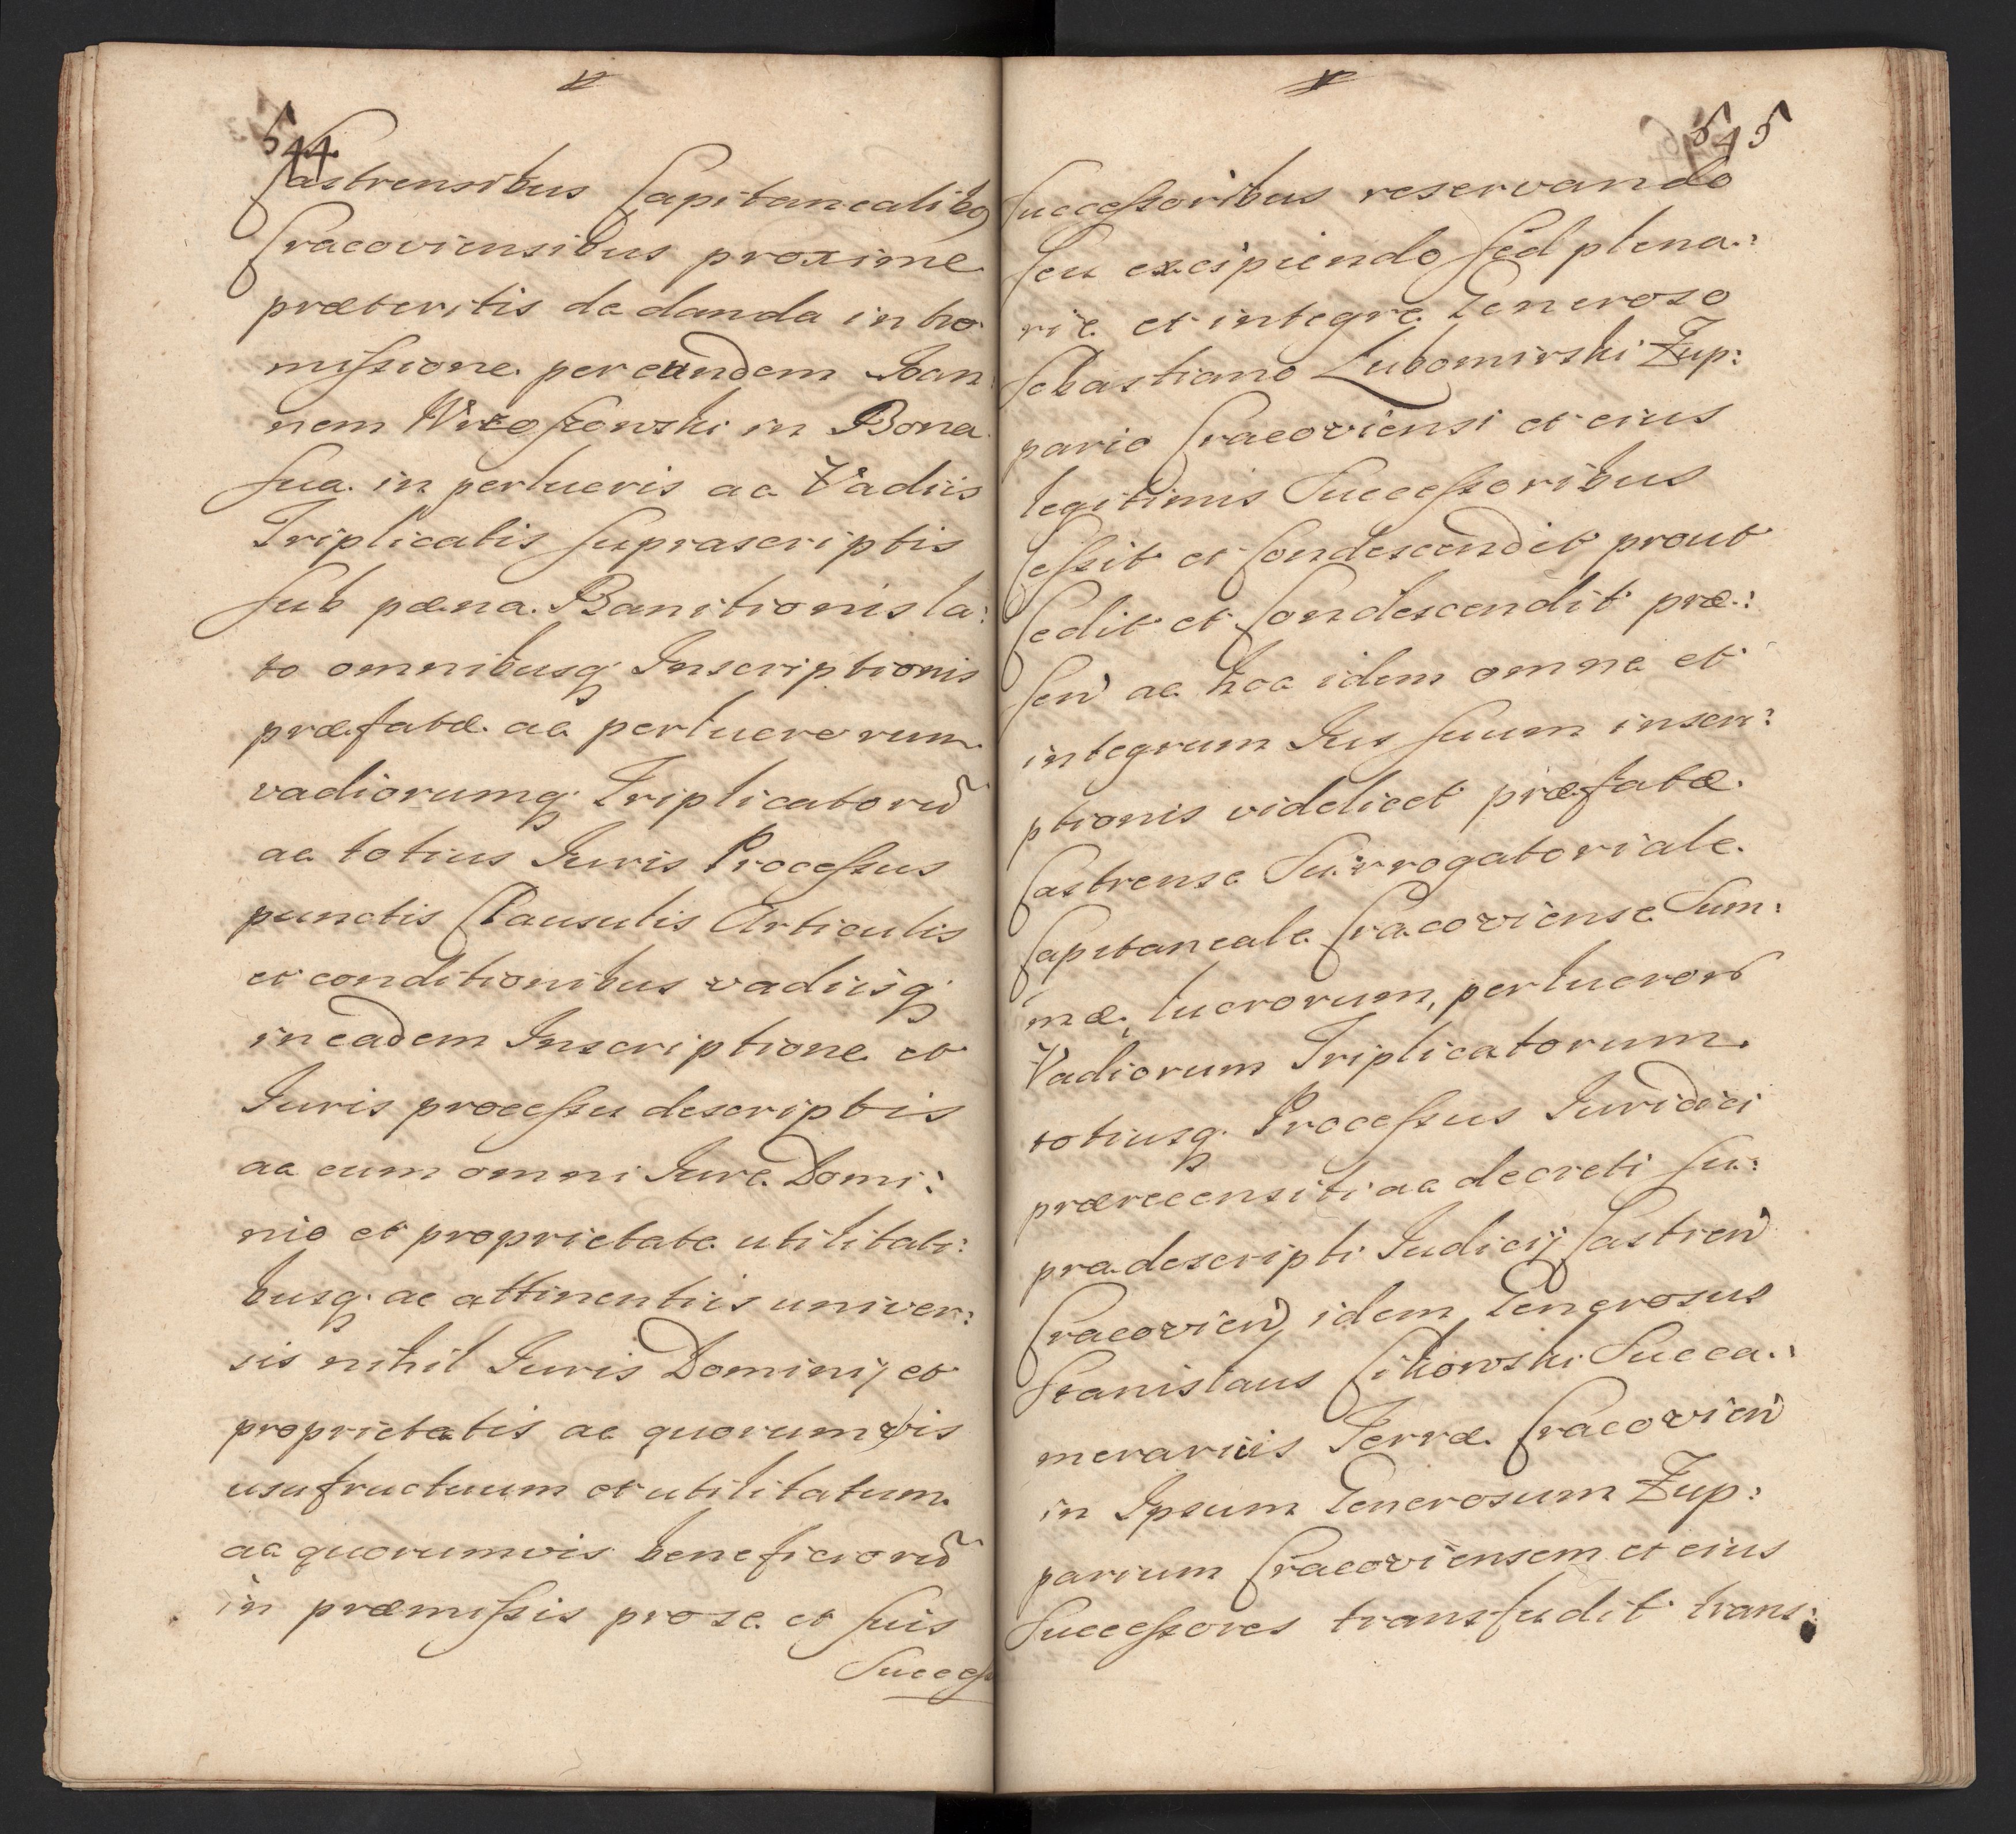 544
Castrensibus Capitanealibq
Cracoviensibus proxime
præteritis de danda intro
missione per eundem Joan
nem Wrzoszowski in Bona
sua in perlucris ac Vadiis
Triplicatis suprascriptis
sub pæna Banitionis la:
to omnibusq Inscriptionis
præfatæ ac perlucrorum
vadiorumq Triplicatorũ
ac totius Juris Processus
punctis Clausulis Articulis
et conditionibus vadiisq
in eadem Inscriptione et
Juris processu descriptis
ac cum omni Jure Domi:
nio et proprietate utilitati:
busq ac attinentiis univer:
sis nihil Juris Dominij et
proprietatis ac quorumvis
usufructuum et utilitatum
ac quorumvis beneficiorũ
in præmissis pro se et suis
Success
545
Successoribus reservando
seu excipiendo sed plena:
rie et integre Generoso
Sebastiano Lubomirski Zup:
pario Cracoviensi et eius
legitimis Successoribus
Cessit et Condescendit prout
Cedit et Condescendit præ:
sen̄ ac hoc idem omne et
integrum Jus suum inscri:
ptionis videlicet præfatæ
Castrense Surrogatoriale
Capitaneale Cracoviense Sum:
mæ, lucrorum, perlucrorũ
Vadiorum Triplicatorum
totiusq Processus Juridici
prærecensiti ac decreti su:
pradescripti Judicij Castren̄
Cracovien̄ idem Generosus
Stanislaus Cikowski Succa:
merarius Terræ Cracovien̄
in Ipsum Generosum Zup:
parium Cracoviensem et eius
Successores transfudit trans: